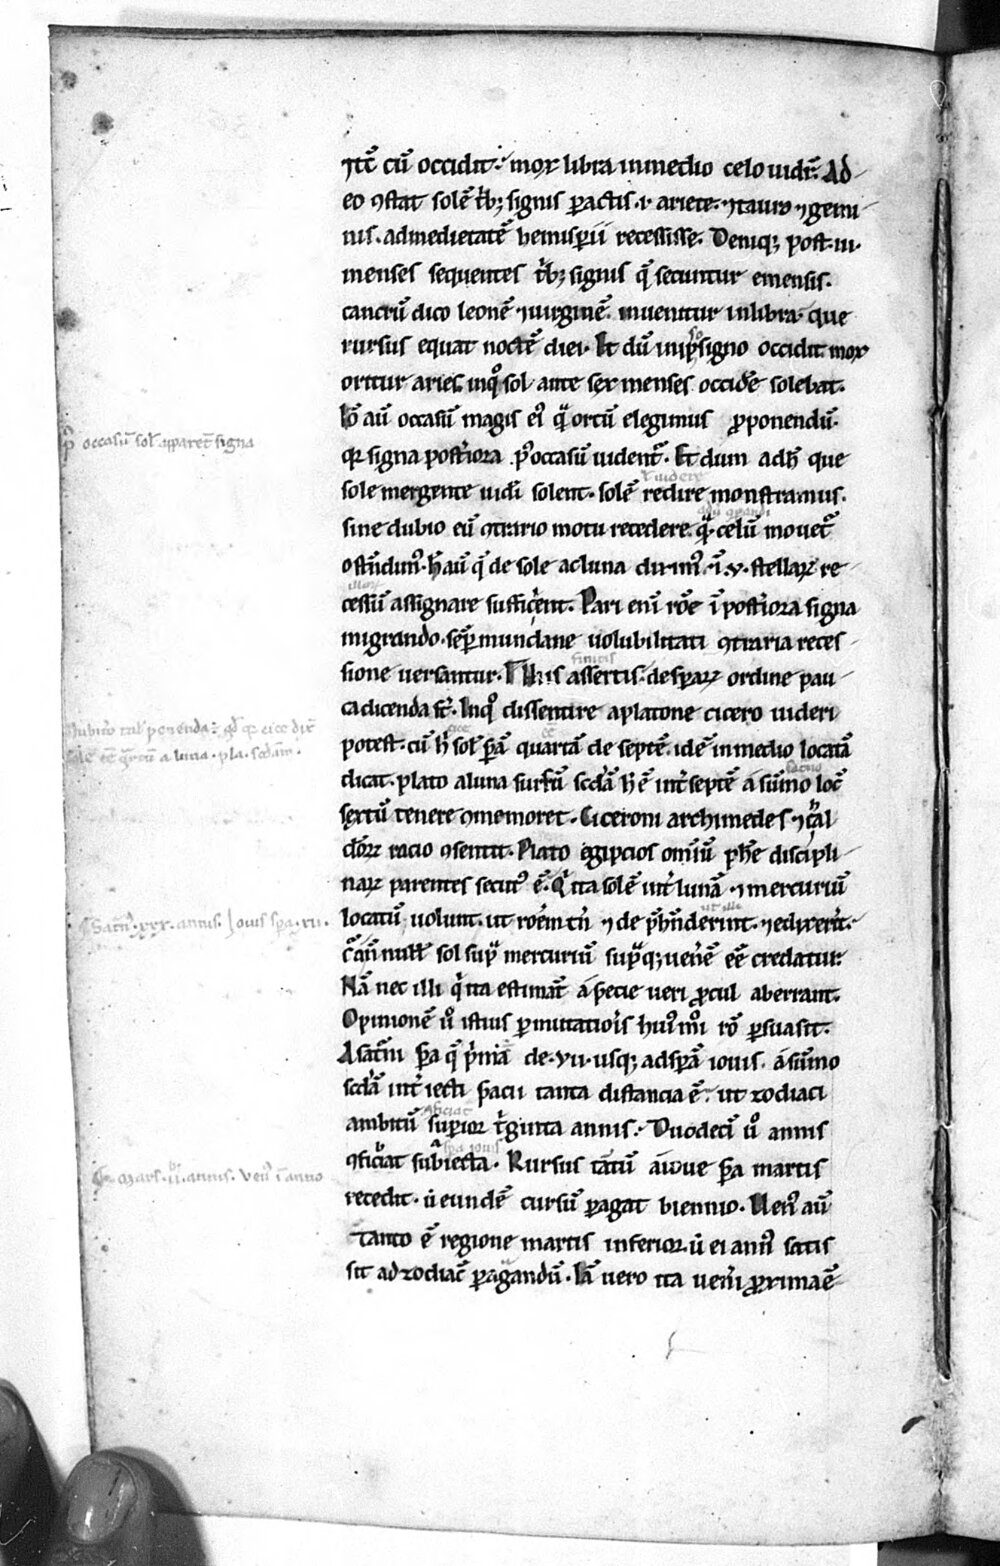 ⁊ tc̄ cū occidit: mox libra in medio celo uidr̄. Ad
eo ꝯstat solē tͥbꝫ signis ꝑactis .i. ariete. ⁊ tauro ⁊ gemi
nis. ad medietatē hemisperii recessisse. Deniqꝫ post .iii.
menses sequentes tͥbꝫ signis q̄ secuntur emensis.
cancrū dico leonē ⁊ uirginē. inuenitur in libra. que
rursus equat noctē diei. Et dū in ip̄so signo occidit mox
oritur aries. in qͦ sol ante sex menses occidē solebat.
Iō aū occasū magis eiꝰ qͣ̄ ortū elegimus ꝓponendū.
qꝛ signa post̾iora p̾ occasū uident᷑. Et dum ad h̄ que
ꝑ occasū sol᷑ apparet̄ signa
sole mergente uidi solent. solē redire monstramus.
sine dubio eū ꝯtrario motu recedere. qͣ̄ celū mouet᷑
ostn̄dimꝰ. h̄ aū q̄ de sole ac luna diximꝰ. ⁊ .v. stellaꝝ re
cessū assignare sufficient. Pari eni rōe ī post̾iora signa
migrando. sēꝑ mundane uolubilitati ꝯtraria reces
sione uersantur. His assertis. de sꝑaꝝ ordine pau
finitis
ca dicenda st̄. In qͦ dissentire a platone cicero uideri
potest. cū h̾ sol᷑ sꝑā quartā de septē. idē in medio locatā
dicat. plato a luna sursū scdā h̾ ē int̾ septē a sūmo locū
sextū tenere ꝯmemoret. Ciceroni archimedes ⁊ cal
deoꝝ racio ꝯsentit. Plato egipcios omiū phīe discipli
naꝝ parentes secutꝰ ē. Qͥ ita solē int̾ lunā ⁊ mercuriū
locatū uolunt. ut rōem tn̄ ⁊ dep̾hn̄derint. ⁊ edixerīt.
Satn̾. xxx. annis. Iouis sꝑa. xii.
cͣ an̄ null᷑ sol supͣ mercuriū supͣqꝫ uenē eē credatur.
Nā nec illi qͥ ita estimāt a specie ueri ꝓcul aberrant.
Opinionē uͦ istius ꝑmutatiōis huiꝰmōi rō ꝑsuasit.
A sat̾ni sꝑa q̄ pͥma ē de .vii. usqꝫ ad sꝑā iouis. a sūmo
scdā int̾iecti spacii tanta distancia ē. ut zodiaci
ambitū suꝑior tͥginta annis. Duodecī uͦ annis
ꝯficiat subiecta. Rursus tātū a ioue sꝑa martis
sꝑa iouis
Mars. ii. annis. Ven̾ ī anno
recedit. ut eundē cursū ꝑagat biennio. Ven̾ aū
tanto ē regione martis inferior. ut ei annꝰ satis
sit ad zodiac̄ ꝑagandū. Iā vero ita ueni̾ ꝓxima ē